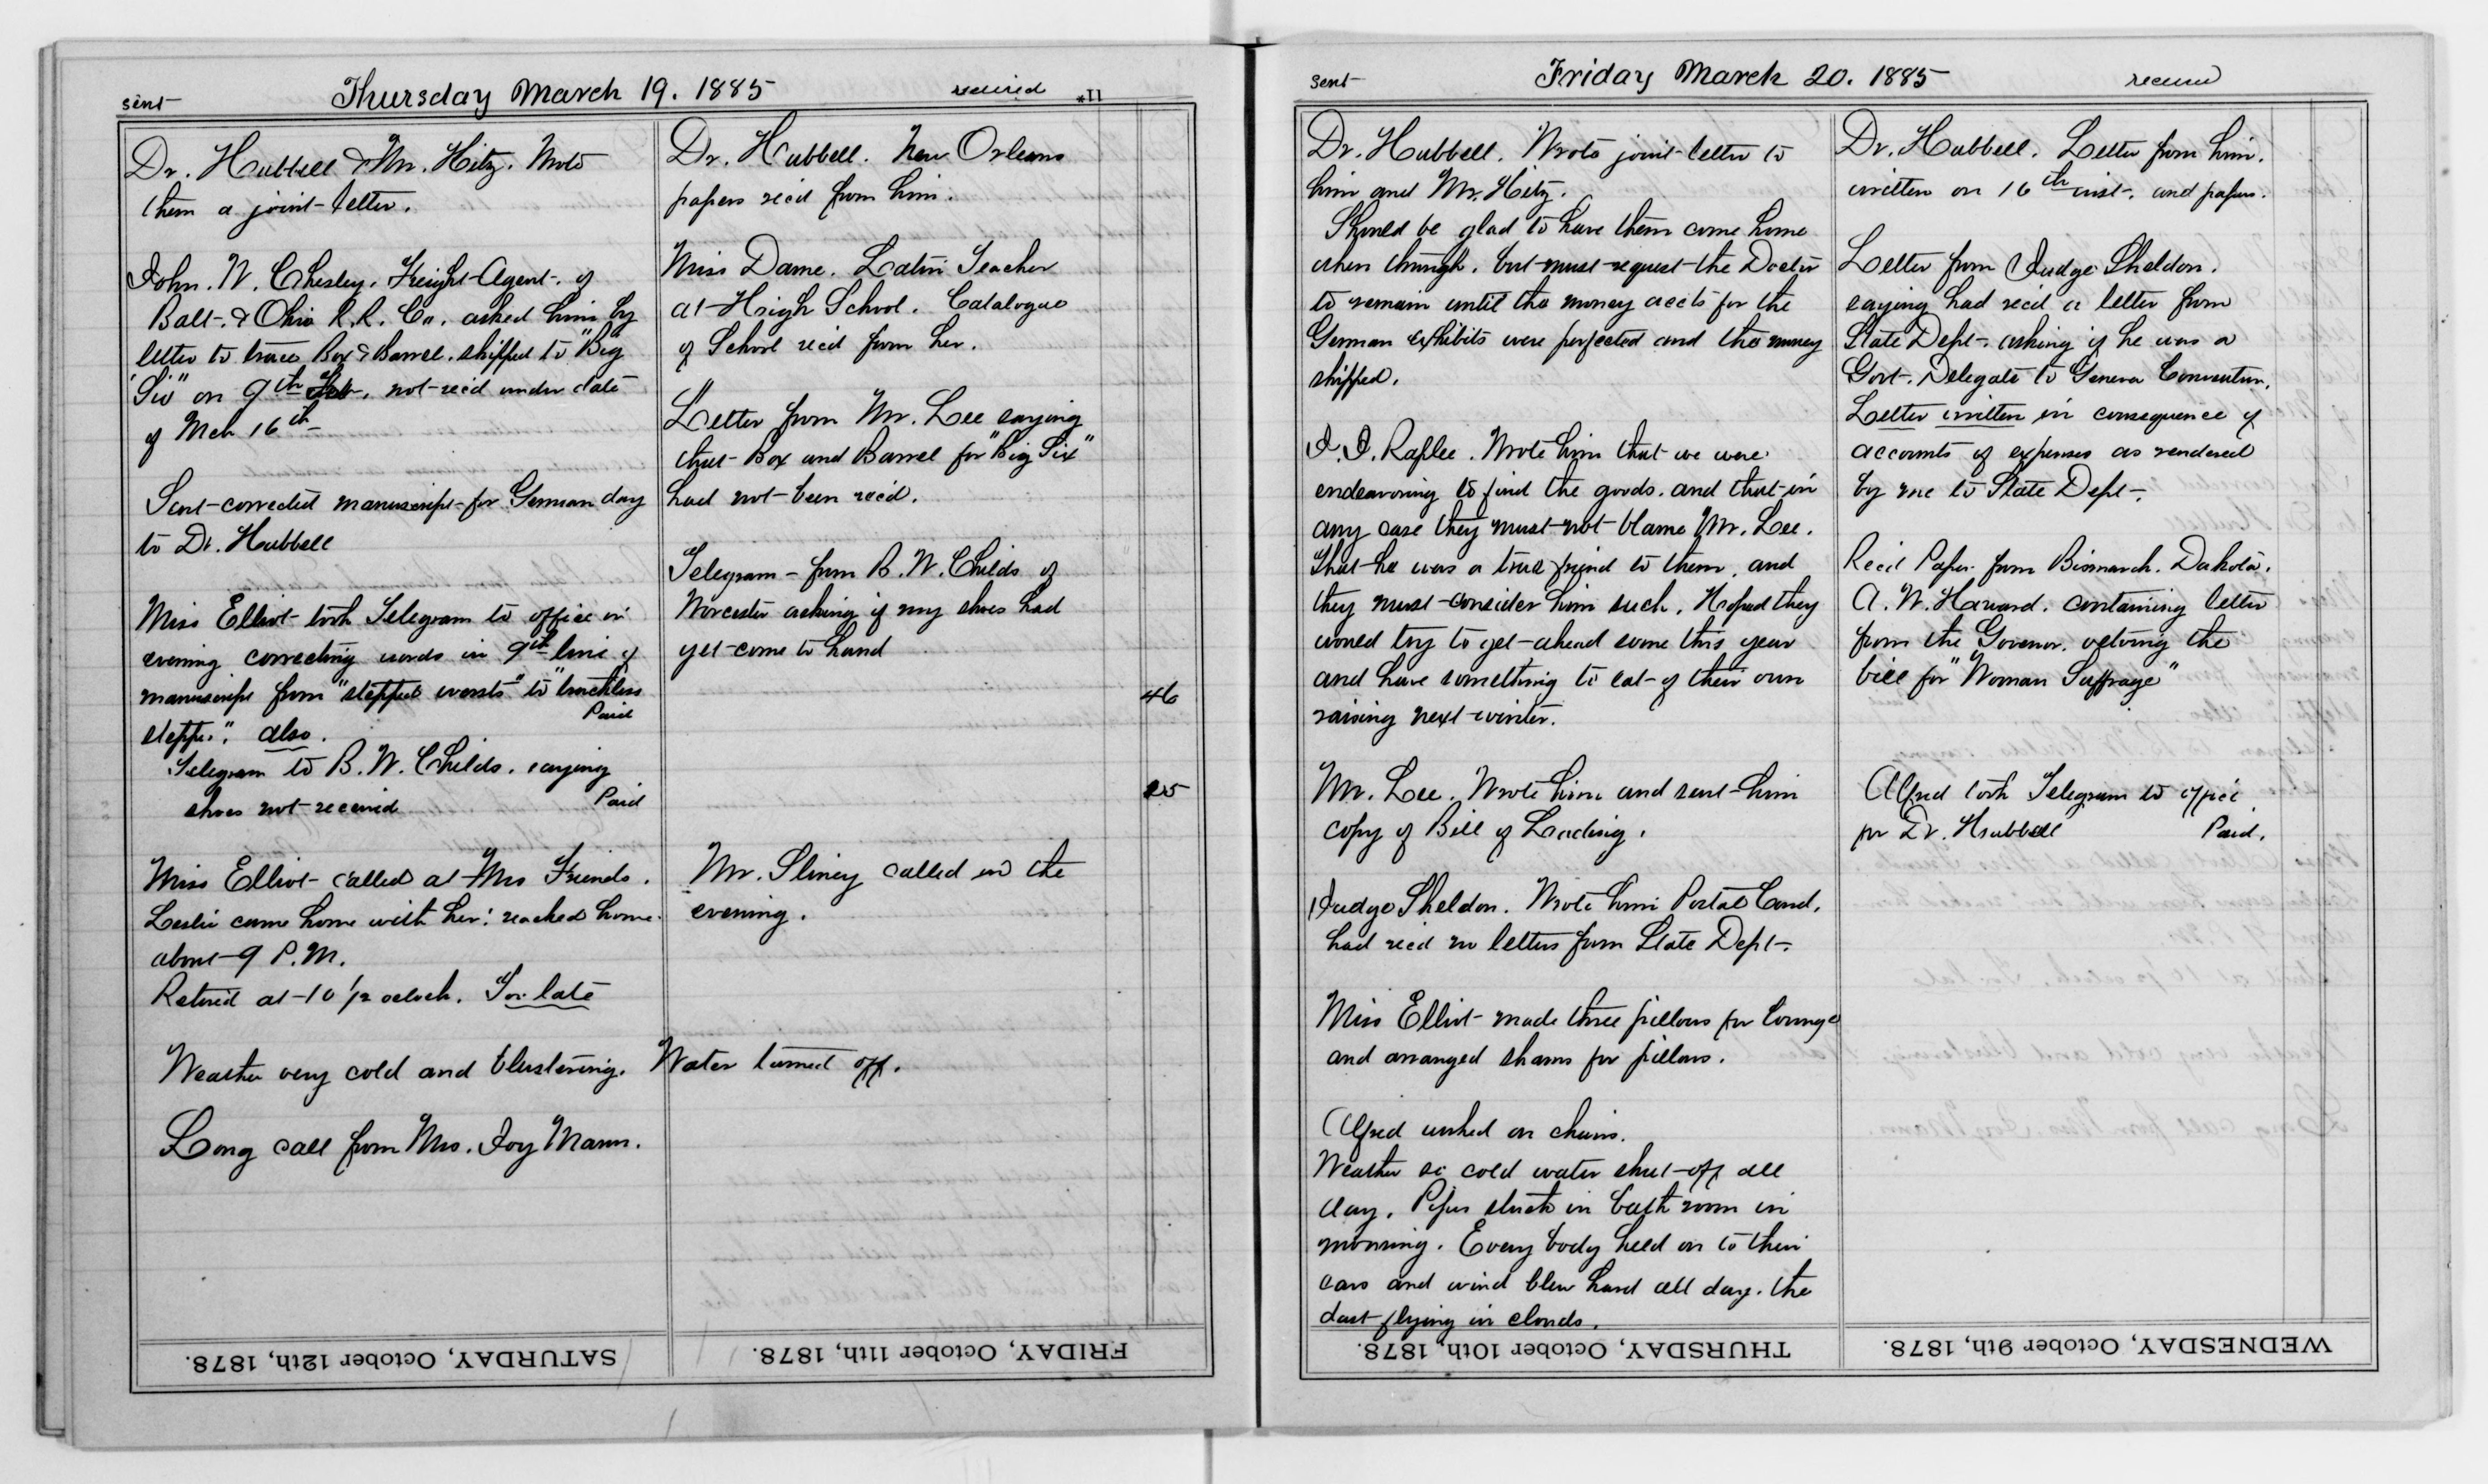 sent
Thursday March 19. 1885
received
Dr. Hubbell & Mr. Hitz. Wrote
them a joint letter.
John. W. Chesley. Freight Agent. of
Balt. & Ohio R.R. Co. asked him by
letter to trace Box & Barrel. shipped to "Big
Six" on 9th Feb. not rec'd under date
of Mch 16th
Sent corrected manuscript for German day
to Dr. Hubbell
Miss Elliot took Telegram to office in
evening correcting words in 9th line of
manuscript from "stepped worsts" to "trackless
steppe." also. Paid
Telegram to B. W. Childs. saying
shoes not received Paid
Miss Elliot called at Mrs Friends.
Leslie came home with her: reached home
about 9 P.M.
Retired at 10 1/2 oclock. Too late
Weather very cold and blustering.
Long call from Mrs. Joy Mann.
Dr. Hubbell. New Orleans
papers rec'd from him.
Miss Dame. Latin Teacher
at High School. Catalogue
of School rec'd from her.
Letter from Mr. Lee saying
that Box and Barrel for "Big Six"
had not been rec'd.
Telegram from B. W. Childs of
Worcester asking if my shoes had
yet come to hand
46
25
Mr. Sliney called in the
evening.
Water turned off.
SATURDAY, October 12th, 1878.
FRIDAY, October 11th, 1878.
sent
Friday March 20. 1885
Dr. Hubbell. Wrote joint letter to
him and Mr. Hitz.
Should be glad to have them come home
when through. but must request the Doctor
to remain until the money accts for the
German exhibits were perfected and the money
shipped.
J. J. Raplee. Wrote him that we were
endeavoring to find the goods. and that in
any case they must not blame Mr. Lee.
that he was a true friend to them, and
they must consider him such. Hoped they
would try to get ahead some this year
and have something to eat of their own
raising next winter.
Mr. Lee. Wrote him and sent him
copy of Bill of Leading.
Judge Sheldon. Wrote him Postal Card.
had rec'd no letters from State Dept.
Miss Elliot made three pillows for lounge
and arranged shams for pillows.
Alfred worked on chairs.
Weather so cold water shut off all
day. Pipes stuck in bath room in
morning. Every body held on to their
ears and wind blew hard all day. the
dust flying in clouds.
Dr. Hubbell. Letter from him.
written on 16th inst. and papers.
Letter from Judge Sheldon.
saying had rec'd a letter from
State Dept. asking if he was a
Govt. Delegate to Geneva Convention.
Letter written in consequence of
accounts of expenses as rendered
by me to State Dept.
Rec'd Paper from Bismarck. Dakota.
A. W. containing letter
from the Govenor. vetoing the
bill for "Woman Suffrage"
Alfred took Telegram to office
for Dr. Hubbell Paid.
THURSDAY, October 10th, 1878.
WEDNESDAY, October 9th, 1878.